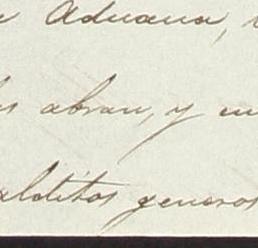 Aduana,
abran, y
alditos generos